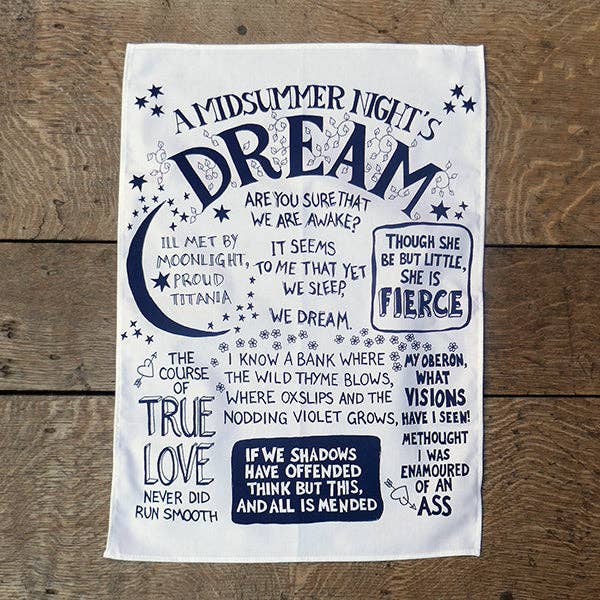 A MIDSUMMER NIGHT'S
DREAM
ARE YOU SURE THAT
WE ARE AWAKE?
IT SEEMS
TO ME THAT YET
WE SLEEP,
WE DREAM.
ILL MET BY
MOONLIGHT,
PROUD
TITANIA
THOUGH SHE
BE BUT LITTLE,
SHE IS
FIERCE
THE
COURSE
OF
TRUE
LOVE
NEVER DID
RUN SMOOTH
I KNOW A BANK WHERE
THE WILD THYME BLOWS,
WHERE OXSLIPS AND THE
NODDING VIOLET GROWS,
IF WE SHADOWS
HAVE OFFENDED
THINK BUT THIS,
AND ALL IS MENDED
MY OBERON,
WHAT
VISIONS
HAVE I SEEN!
METHOUGHT
I WAS
ENAMOURED
OF AN
ASS